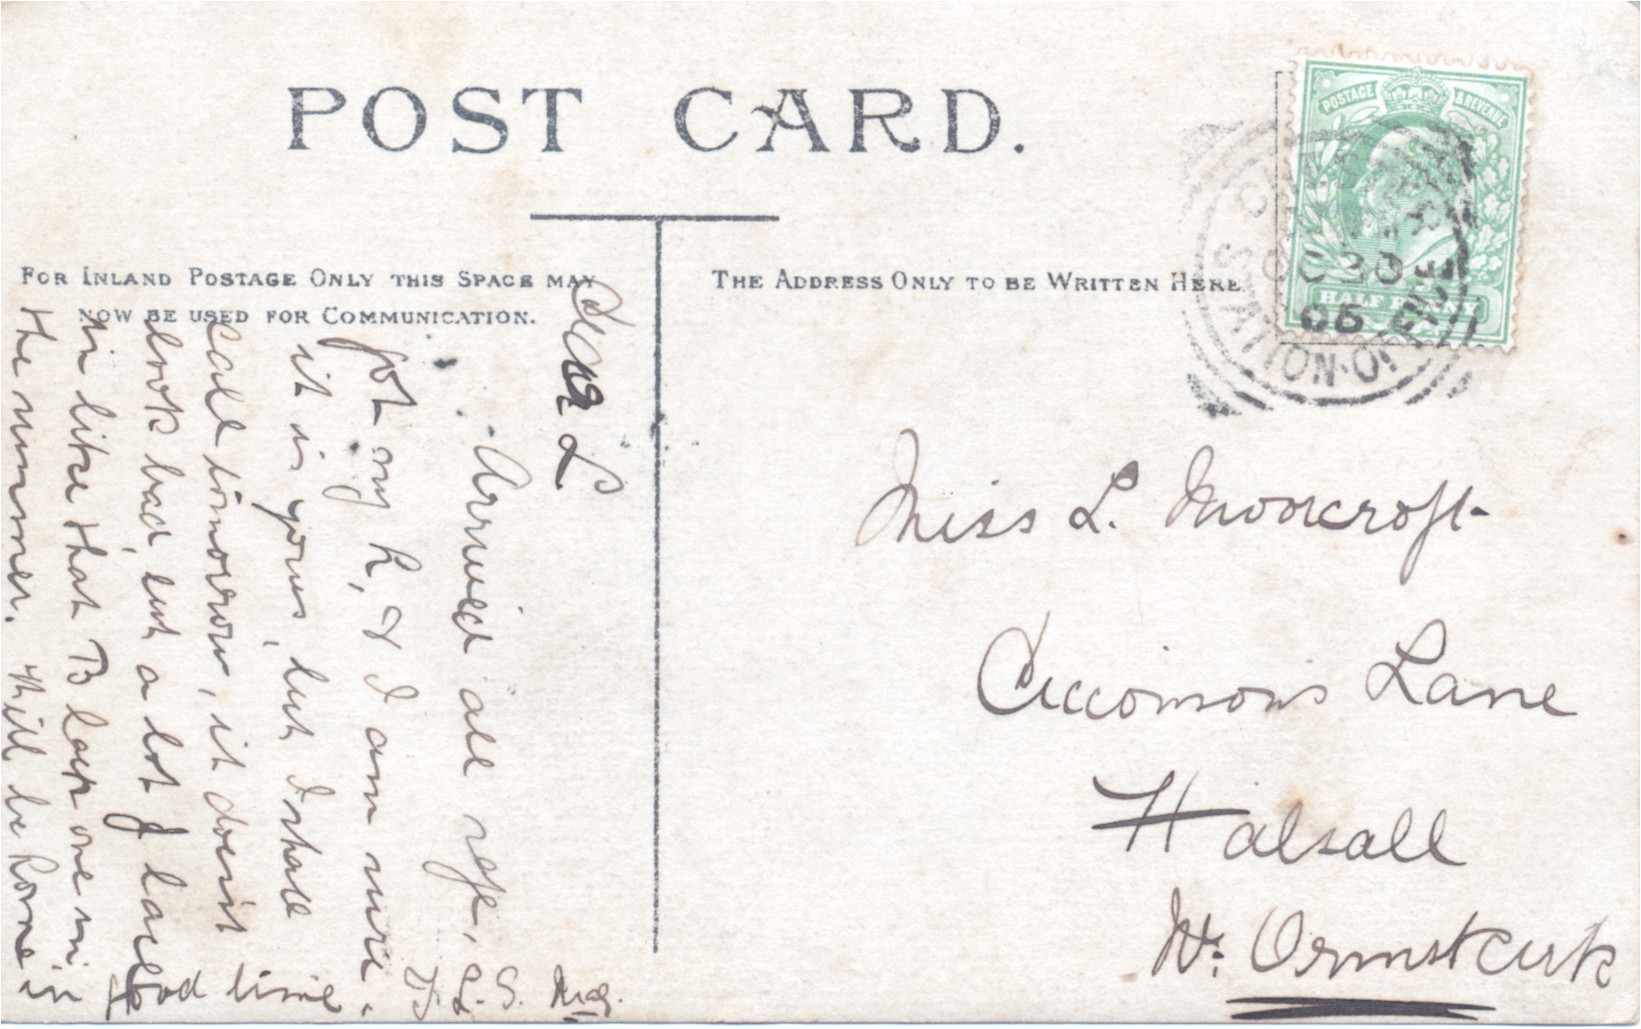 POST CARD.
FOR INLAND POSTAGE ONLY THIS SPACE MAY
NOW BE USED FOR COMMUNICATION.
THE ADDRESS ONLY TO BE WRITTEN HERE.
POSTAGE & REVENUE
HALF PENNY
STATION OFFICE
OC 30
06
Miss L. Moorcroft
Lane
Halsall
Nr. Ormskirk
Dear L
Arrived all safe,
got my h, & I am sure
it is yours, but I shall
call tomorrow, it doesn't
look bad, but a lot of lace
in like that B lap one in
the summer. Will be home
in good time